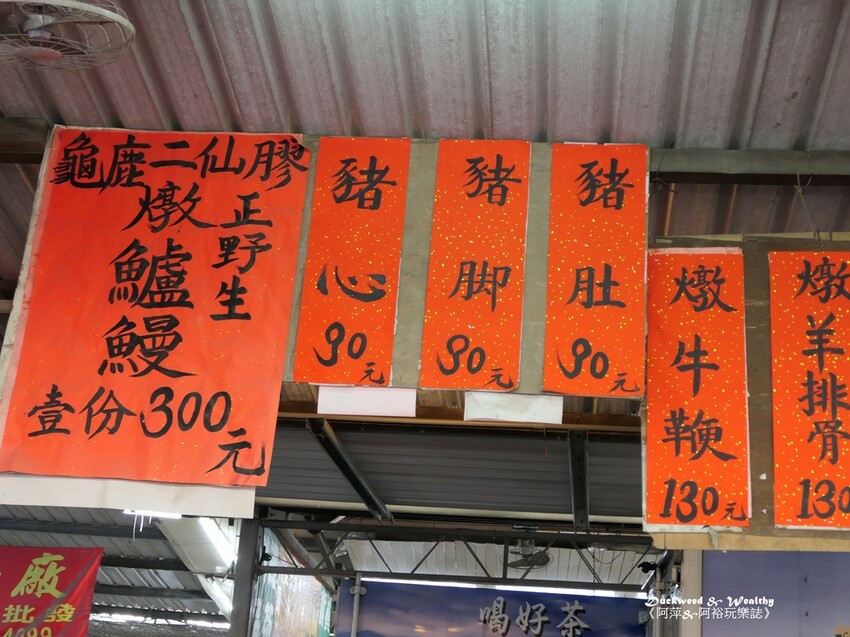 龜鹿二仙膠
燉鱸鰻
正野生
壹份300元
豬心
90元
豬脚
90元
豬肚
90元
燉牛鞭
130元
燉羊排骨
130
廠
批發
4299
喝好茶
Duckweed & Wealthy
《阿萍&阿裕玩樂誌》